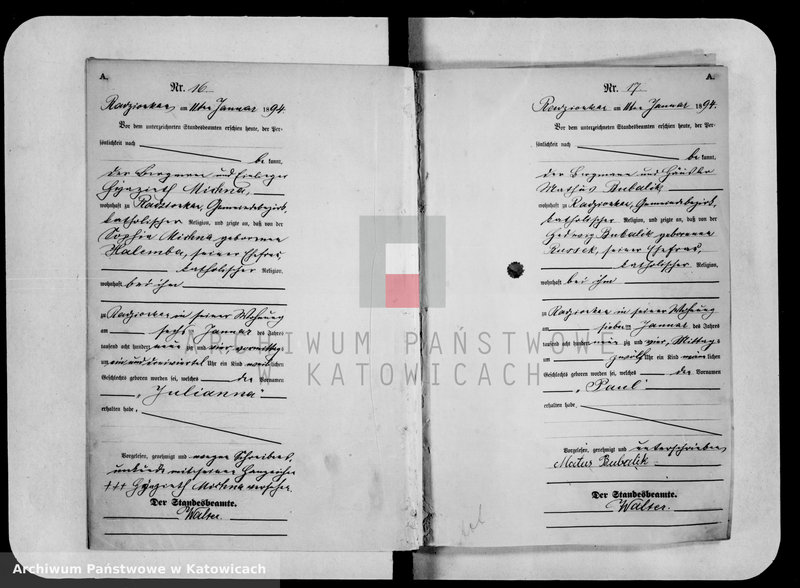 A.
Nr. 16
Radzionkau am 11ten Januar 1894.
Vor dem unterzeichneten Standesbeamten erschien heute, der Per-
sönlichkeit nach
be kannt,
der Bergmann und
Hyazinth Michna,
wohnhaft zu Radzionkau, Gemeindebezirk,
katholischer Religion, und zeigte an, daß von der
Sophie Michna geborenen
Halemba, seiner Ehefrau
katholischer Religion,
wohnhaft bei ihm
zu Radzionkau in seiner Wohnung
am sechs ten Januar des Jahres
tausend acht hundert neun zig und vier Vormittags
um ein und dreiviertel Uhr ein Kind weiblichen
Geschlechts geboren worden sei, welches den Vornamen
„Julianna“
erhalten habe.
Vorgelesen, genehmigt und wegen Schreibens-
unkunde mit seinem Handzeichen
+++ Hyazinth Michna versehen.
Der Standesbeamte.
Walter.
A.
Nr. 17
Radzionkau am 11ten Januar 1894.
Vor dem unterzeichneten Standesbeamten erschien heute, der Per-
sönlichkeit nach
be kannt,
der Bergmann und Häusler
Mathus Bubalik,
wohnhaft zu Radzionkau, Gemeindebezirk,
katholischer Religion, und zeigte an, daß von der
Hedwig Bubalik geborenen
seiner Ehefrau
katholischer Religion,
wohnhaft bei ihm
zu Radzionkau in seiner Wohnung
am sieben ten Januar des Jahres
tausend acht hundert neun zig und vier, Mittags
um zwölf Uhr ein Kind männlichen
Geschlechts geboren worden sei, welches den Vornamen
„Paul“
erhalten habe.
Vorgelesen, genehmigt und unterschrieben
Matus Bubalik
Der Standesbeamte.
Walter.
ARCHIWUM PAŃSTWOWE
W KATOWICACH
Archiwum Państwowe w Katowicach